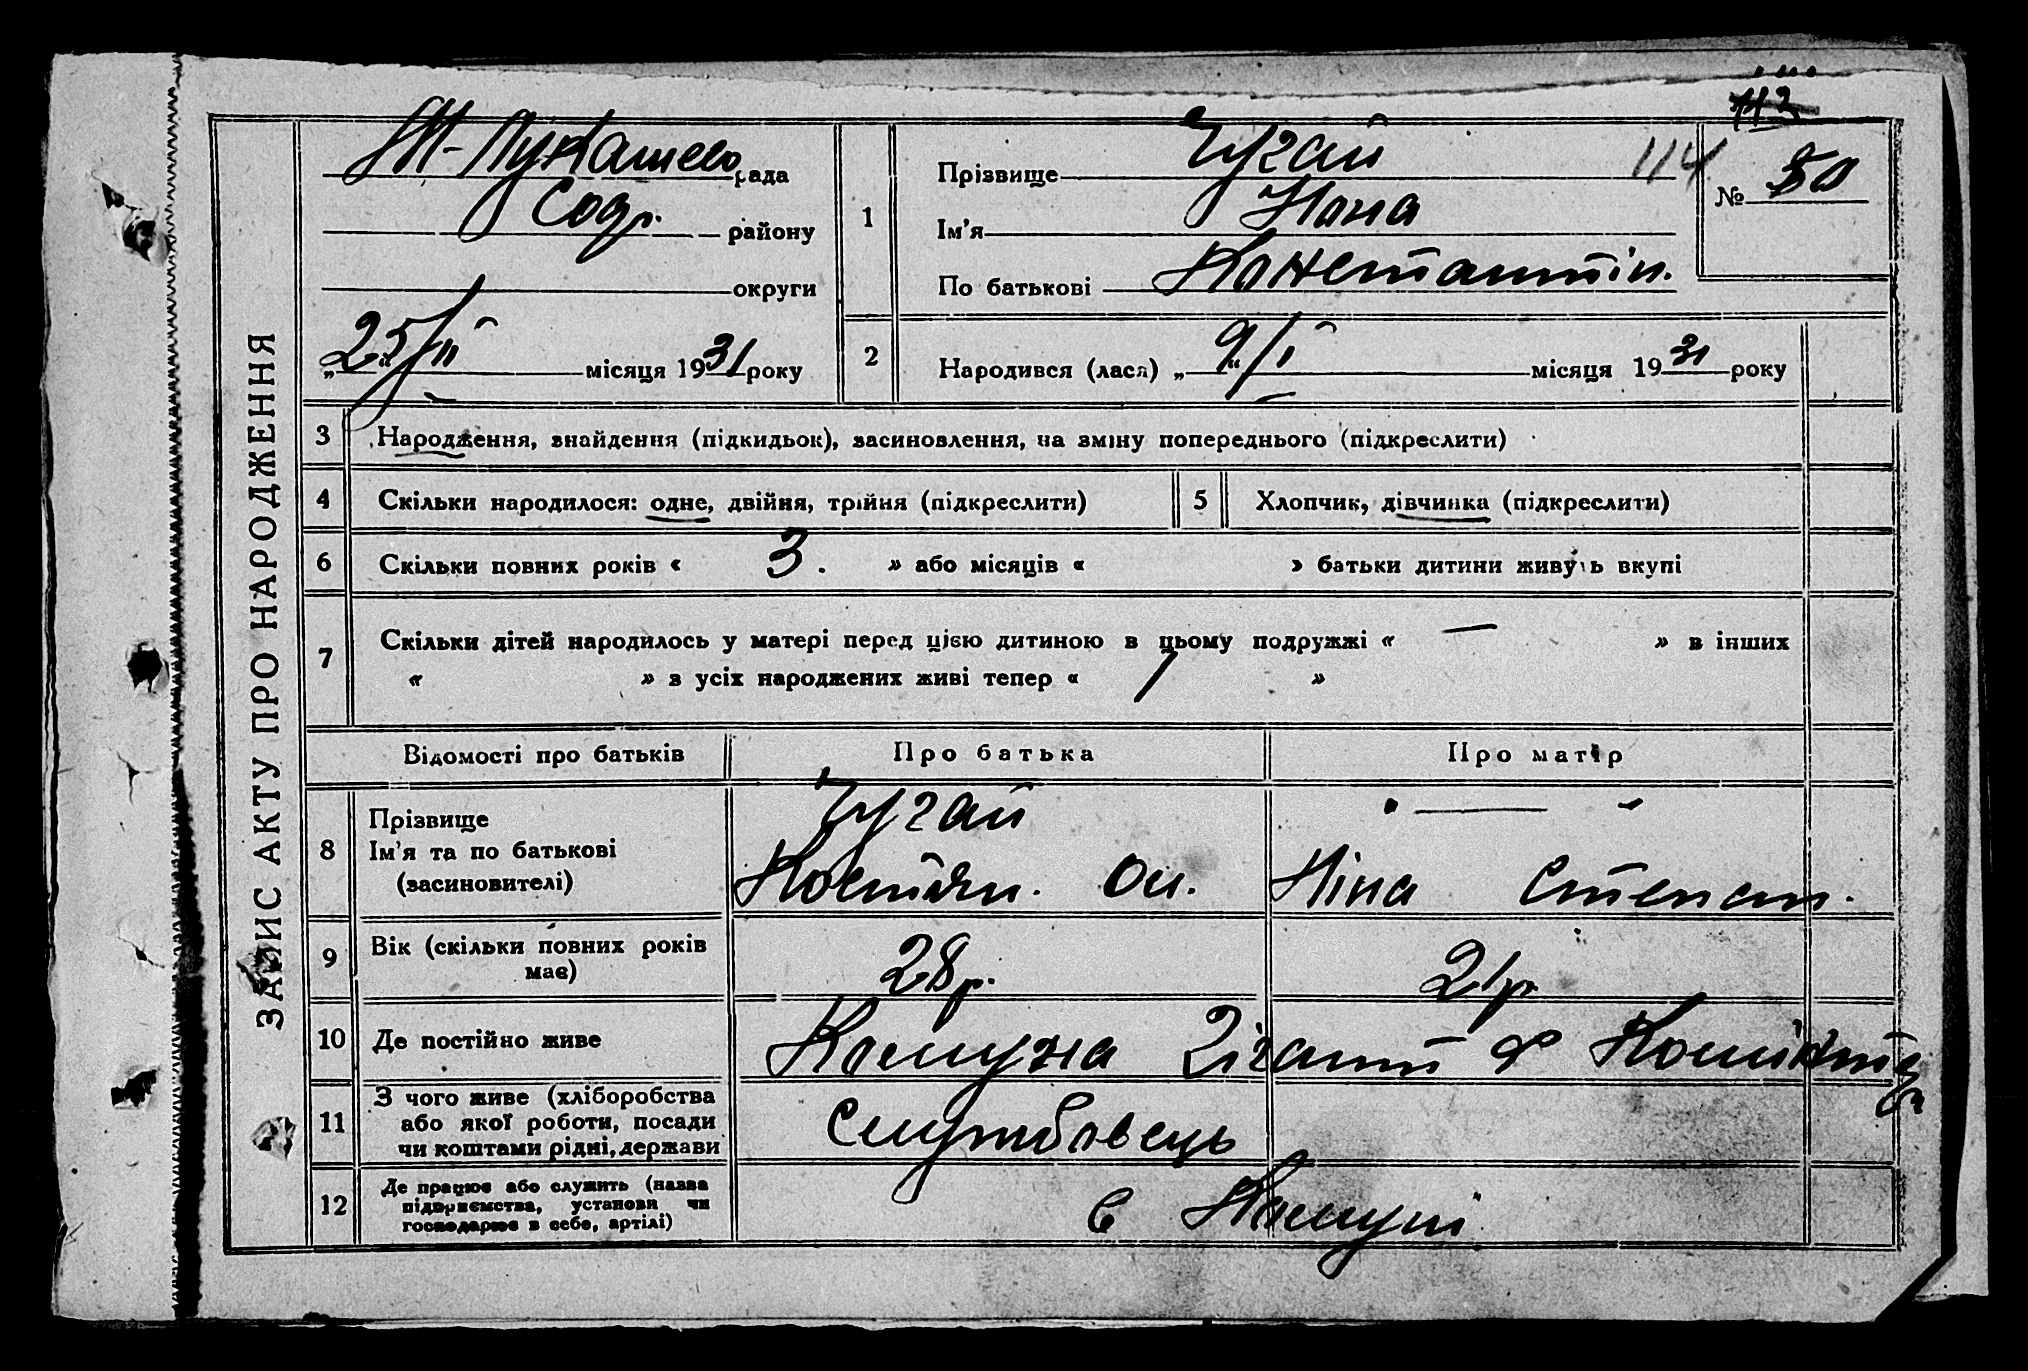 ЗАПИС АКТУ ПРО НАРОДЖЕННЯ
рада
Сод. району
округи
„25“/II місяця 1931 року
112
114
№ 50
1
Прізвище Чугай
Ім'я Нона
По батькові Константін.
2
Народився (лася) „9“/I місяця 1931 року
3 Народження, знайдення (підкидьок), засиновлення, на зміну попереднього (підкреслити)
4 Скільки народилося: одне, двійня, трійня (підкреслити) 5 Хлопчик, дівчинка (підкреслити)
6 Скільки повних років « 3. » або місяців « » батьки дитини живуть вкупі
7 Скільки дітей народилось у матері перед цією дитиною в цьому подружжі « — » в інших
« » з усіх народжених живі тепер « 1 »
Відомості про батьків Про батька Про матір
8 Прізвище Чугай " — "
Ім'я та по батькові
(засновителі) Костян. Он. Ніна Степан.
9 Вік (скільки повних років має) 28 р. 21 р.
10 Де постійно живе Комуна Гігант
11 З чого живе (хліборобства
або якої роботи, посади
чи коштами рідні, держави Службовець
12 Де працює або служить (назва
підприємства, установи чи
господарює в себе, артілі) в Комуні